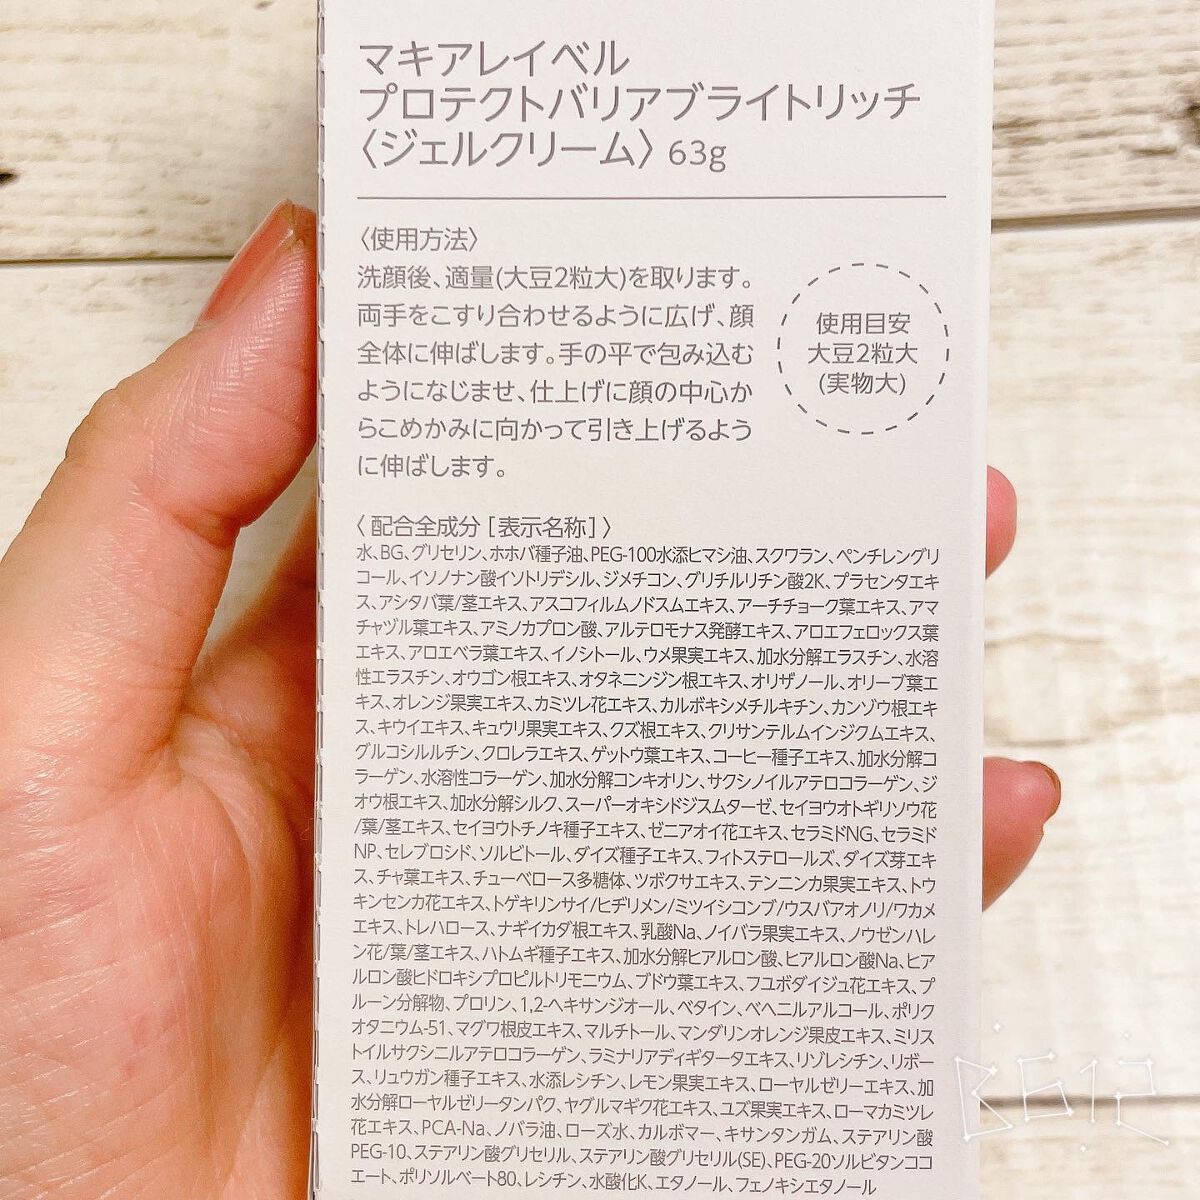 マキアレイベル
プロテクトバリアブライトリッチ
〈ジェルクリーム〉 63g
〈使用方法〉
洗顔後、適量(大豆2粒大)を取ります。
両手をこすり合わせるように広げ、顔
全体に伸ばします。手の平で包み込む
ようになじませ、仕上げに顔の中心か
らこめかみに向かって引き上げるよう
に伸ばします。
使用目安
大豆2粒大
(実物大)
〈 配合全成分 [表示名称] 〉
水、BG、グリセリン、ホホバ種子油、PEG-100水添ヒマシ油、スクワラン、ペンチレングリ
コール、イソノナン酸イソトリデシル、ジメチコン、グリチルリチン酸2K、プラセンタエキ
ス、アシタバ葉/茎エキス、アスコフィルムノドスムエキス、アーチチョーク葉エキス、アマ
チャヅル葉エキス、アミノカプロン酸、アルテロモナス発酵エキス、アロエフェロックス葉
エキス、アロエベラ葉エキス、イノシトール、ウメ果実エキス、加水分解エラスチン、水溶
性エラスチン、オウゴン根エキス、オタネニンジン根エキス、オリザノール、オリーブ葉エ
キス、オレンジ果実エキス、カミツレ花エキス、カルボキシメチルキチン、カンゾウ根エキ
ス、キウイエキス、キュウリ果実エキス、クズ根エキス、クリサンテルムインジクムエキス、
グルコシルルチン、クロレラエキス、ゲットウ葉エキス、コーヒー種子エキス、加水分解コ
ラーゲン、水溶性コラーゲン、加水分解コンキオリン、サクシノイルアテロコラーゲン、ジ
オウ根エキス、加水分解シルク、スーパーオキシドジスムターゼ、セイヨウオトギリソウ花
/葉/茎エキス、セイヨウトチノキ種子エキス、ゼニアオイ花エキス、セラミドNG、セラミド
NP、セレブロシド、ソルビトール、ダイズ種子エキス、フィトステロールズ、ダイズ芽エキ
ス、チャ葉エキス、チューベロース多糖体、ツボクサエキス、テンニンカ果実エキス、トウ
キンセンカ花エキス、トゲキリンサイ/ヒヂリメン/ミツイシコンブ/ウスバアオノリ/ワカメ
エキス、トレハロース、ナギイカダ根エキス、乳酸Na、ノイバラ果実エキス、ノウゼンハレ
ン花/葉/茎エキス、ハトムギ種子エキス、加水分解ヒアルロン酸、ヒアルロン酸Na、ヒア
ルロン酸ヒドロキシプロピルトリモニウム、ブドウ葉エキス、フユボダイジュ花エキス、プ
ルーン分解物、プロリン、1,2-ヘキサンジオール、ベタイン、ベヘニルアルコール、ポリク
オタニウム-51、マグワ根皮エキス、マルチトール、マンダリンオレンジ果皮エキス、ミリス
トイルサクシニルアテロコラーゲン、ラミナリアディギタータエキス、リゾレシチン、リボー
ス、リュウガン種子エキス、水添レシチン、レモン果実エキス、ローヤルゼリーエキス、加
水分解ローヤルゼリータンパク、ヤグルマギク花エキス、ユズ果実エキス、ローマカミツレ
花エキス、PCA-Na、ノバラ油、ローズ水、カルボマー、キサンタンガム、ステアリン酸
PEG-10、ステアリン酸グリセリル、ステアリン酸グリセリル(SE)、PEG-20ソルビタンココ
エート、ポリソルベート80、レシチン、水酸化K、エタノール、フェノキシエタノール
B612